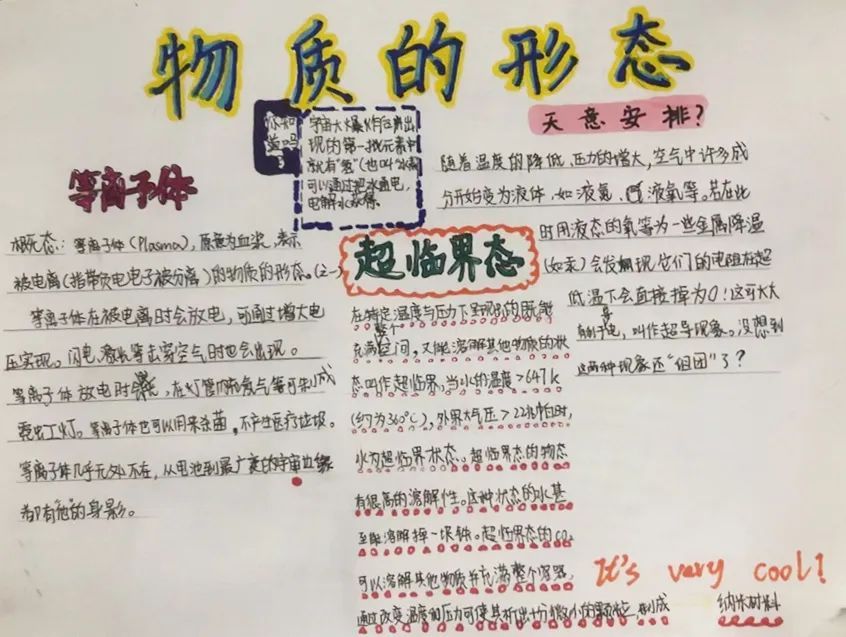 物质的形态
你知道吗?
宇宙大爆炸后产出
现的第一批元素中
就有"氢"(也叫"水素
可以通过把水通电,
电解水获得。
等离子体
概况态:等离子体(Plasma),原意为血浆,表示
被电离(指带负电电子被分离)的物质的形态。(之一)
等离子体在被电离时会放电,可通过增大电
压实现。闪电、激光等击穿空气时也会出现。
等离子体放电时会,在灯管内充氖气等可制成
霓虹灯。等离子体也可以用来杀菌,不产生医疗垃圾。
等离子体几乎无处不在,从电池到最广袤的宇宙边缘
都有他的身影。
超临界态
在特定温度与压力下呈现出的既能
充满整个空间,又能溶解其他物质的状
态叫作超临界,当水的温度>647k
(约为360°C),外界大气压>22兆帕时,
水为超临界状态。超临界态的物态
有很高的溶解性。这种状态的水甚
至能溶解掉一块铁。超临界态的CO₂
可以溶解其他物质并充满整个容器,
通过改变温度和压力可使其析出十分微小的颗粒,制成 纳米材料
天意安排?
随着温度的降低、压力的增大,空气中许多成
分开始变为液体,如液氮、液氧等。若在此
时用液态的氧等为一些金属降温
(如汞)会发现它们的电阻在超
低温下会直接掉为0!这可大大
有利于导电,叫作超导现象。没想到
这两种现象还"组团"了?
It's very cool!